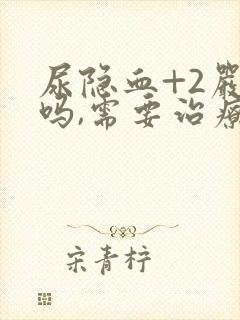 尿隐血+2严
吗,需要治疗
宋青柠